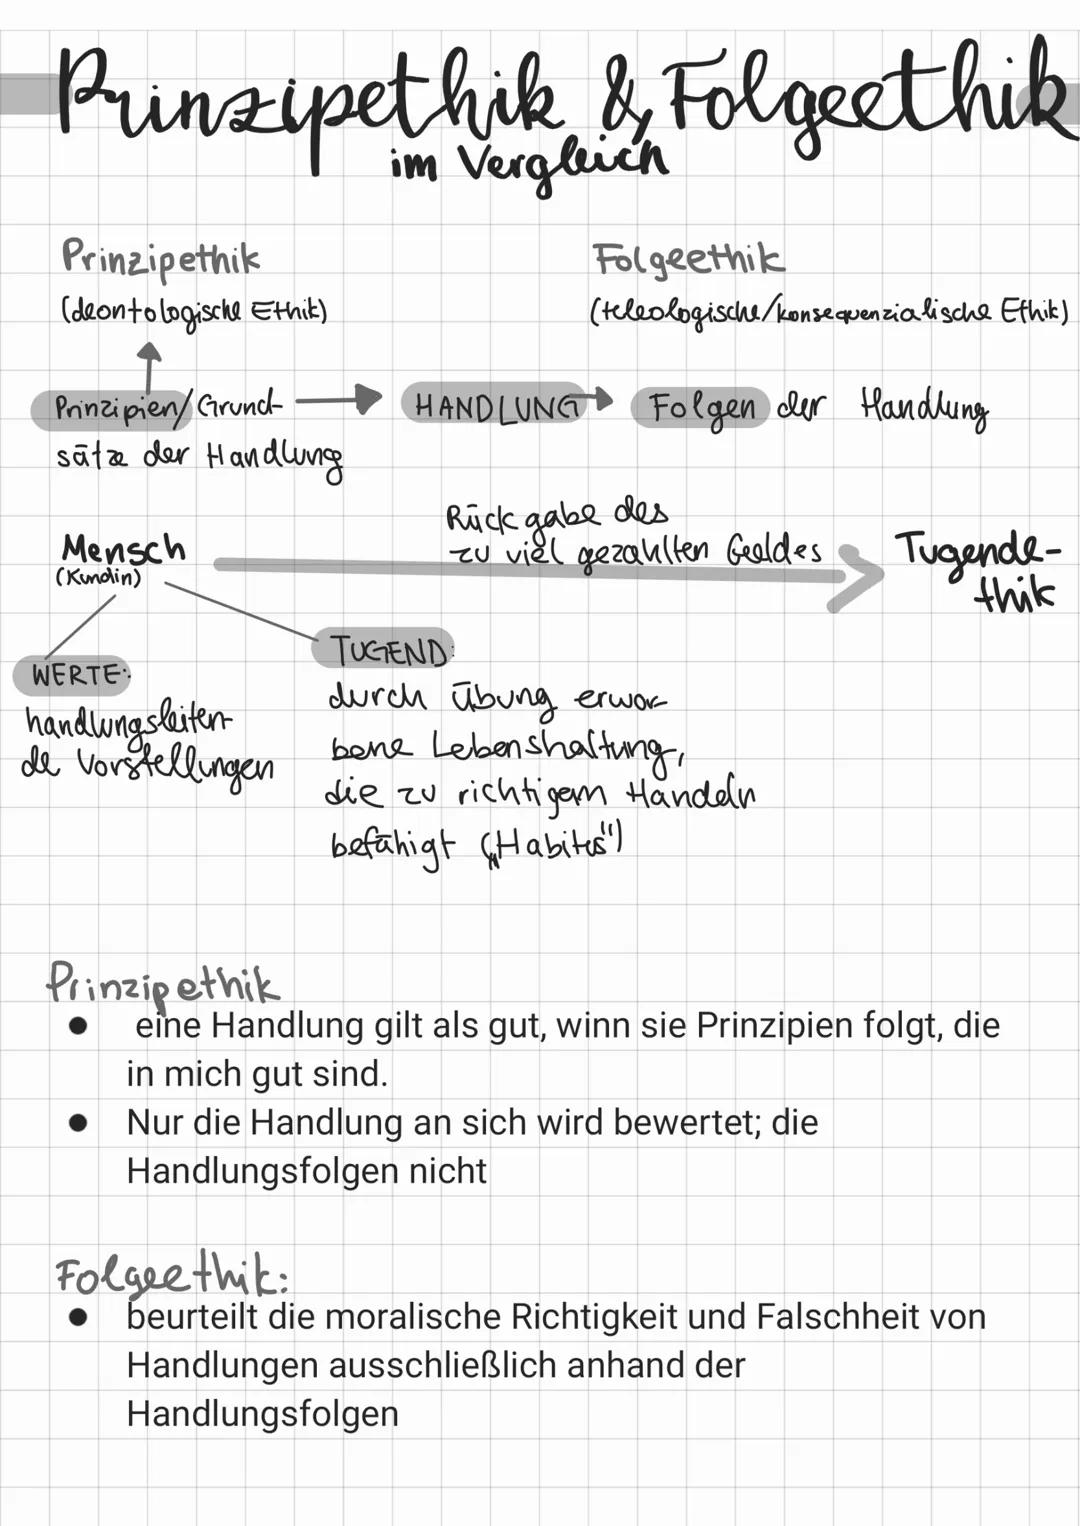 Prinzipethik & Folgeethik
im Vergleich
Prinzipethik
(deontologische Ethik)
Folgeethik
(teleologische/konsequenzialische Ethik)
Prinzipien/Grund-
sätze der Handlung
HANDLUNG
Folgen der Handlung
Mensch
(Kundin)
Rückgabe des
zu viel gezahlten Geldes
Tugende-
thik
WERTE:
handlungsleiten-
de Vorstellungen
TUGEND:
durch Übung erwor-
bene Lebenshaltung,
die zu richtigem Handeln
befähigt („Habitus")
Prinzipethik
● eine Handlung gilt als gut, winn sie Prinzipien folgt, die
in mich gut sind.
● Nur die Handlung an sich wird bewertet; die
Handlungsfolgen nicht
Folgeethik:
● beurteilt die moralische Richtigkeit und Falschheit von
Handlungen ausschließlich anhand der
Handlungsfolgen